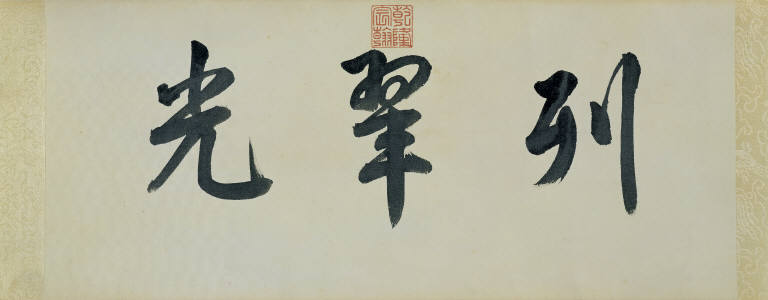 列翠光
乾隆
宸翰